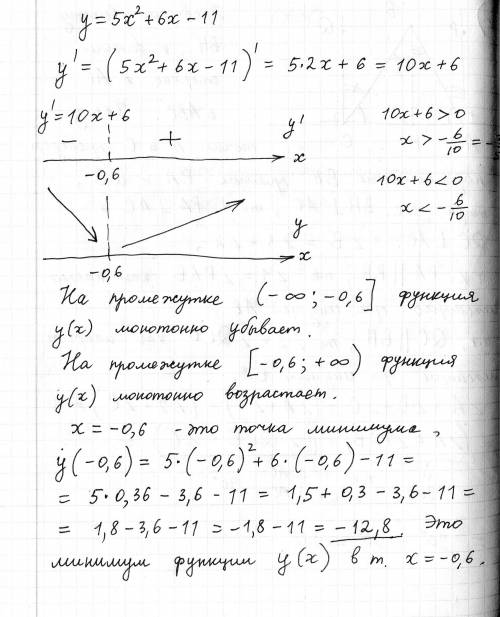 y = 5x² + 6x - 11
y' = (5x² + 6x - 11)' = 5·2x + 6 = 10x + 6
y' = 10x + 6
+
y'
x
-0,6
10x + 6 > 0
x > -6/10 = -
10x + 6 < 0
x < -6/10
y
x
-0,6
На промежутке (-∞; -0,6] функция
y(x) монотонно убывает.
На промежутке [-0,6; +∞) функция
y(x) монотонно возрастает.
x = -0,6 - это точка минимума,
y(-0,6) = 5·(-0,6)² + 6·(-0,6) - 11 =
= 5·0,36 - 3,6 - 11 = 1,5 + 0,3 - 3,6 - 11 =
= 1,8 - 3,6 - 11 = -1,8 - 11 = -12,8. Это
минимум функции y(x) в т. x = -0,6.